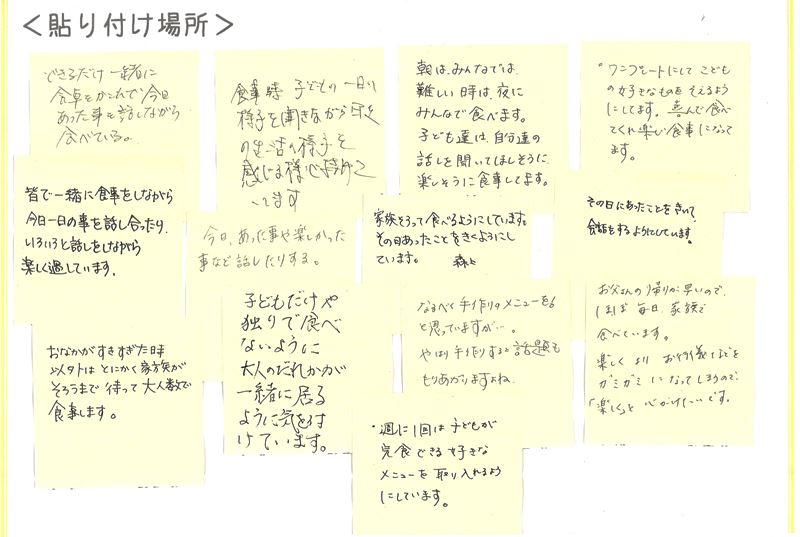 ＜貼り付け場所＞
できるだけ一緒に
食卓をかこんで今日
あった事を話しながら
食べている。
食事時 子どもの一日の
様子を聞きながら
の生活の様子を
感じる様心掛けて
います
朝は、みんなでは、
難しい時は、夜に
みんなで食べます。
子ども達は、自分達の
話しを聞いてほしそうに、
楽しそうに食事してます。
・ワンプレートにして こども
の好きなものをそえるよう
にしてます。喜んで食べ
てくれ楽しい食事になって
ます。
皆で一緒に食事をしながら
今日一日の事を話し合ったり、
いろいろと話しをしながら
楽しく過しています。
今日、あった事や楽しかった
事など話したりする。
家族そろって食べるようにしています。
その日あったことをきくようにし
ています。
その日にあったことをきいて
会話をするようにしています。
おなかがすきすぎた時
以外はとにかく家族が
そろうまで待って大人数で
食事します。
子どもだけや
独りで食べ
ないように
大人のだれかが
一緒に居る
ように気を付
けています。
なるべく手作りのメニューを
と思っていますが…。
やはり手作りすると話題も
もりあがりますよね
お父さんの帰りが早いので、
ほぼ毎日、家族で
食べています。
楽しく より お行儀などを
ガミガミ になってしまうので、
「楽しく」と心がけたいです。
・週に1回は子どもが
完食できる好きな
メニューを取り入れるよう
にしています。